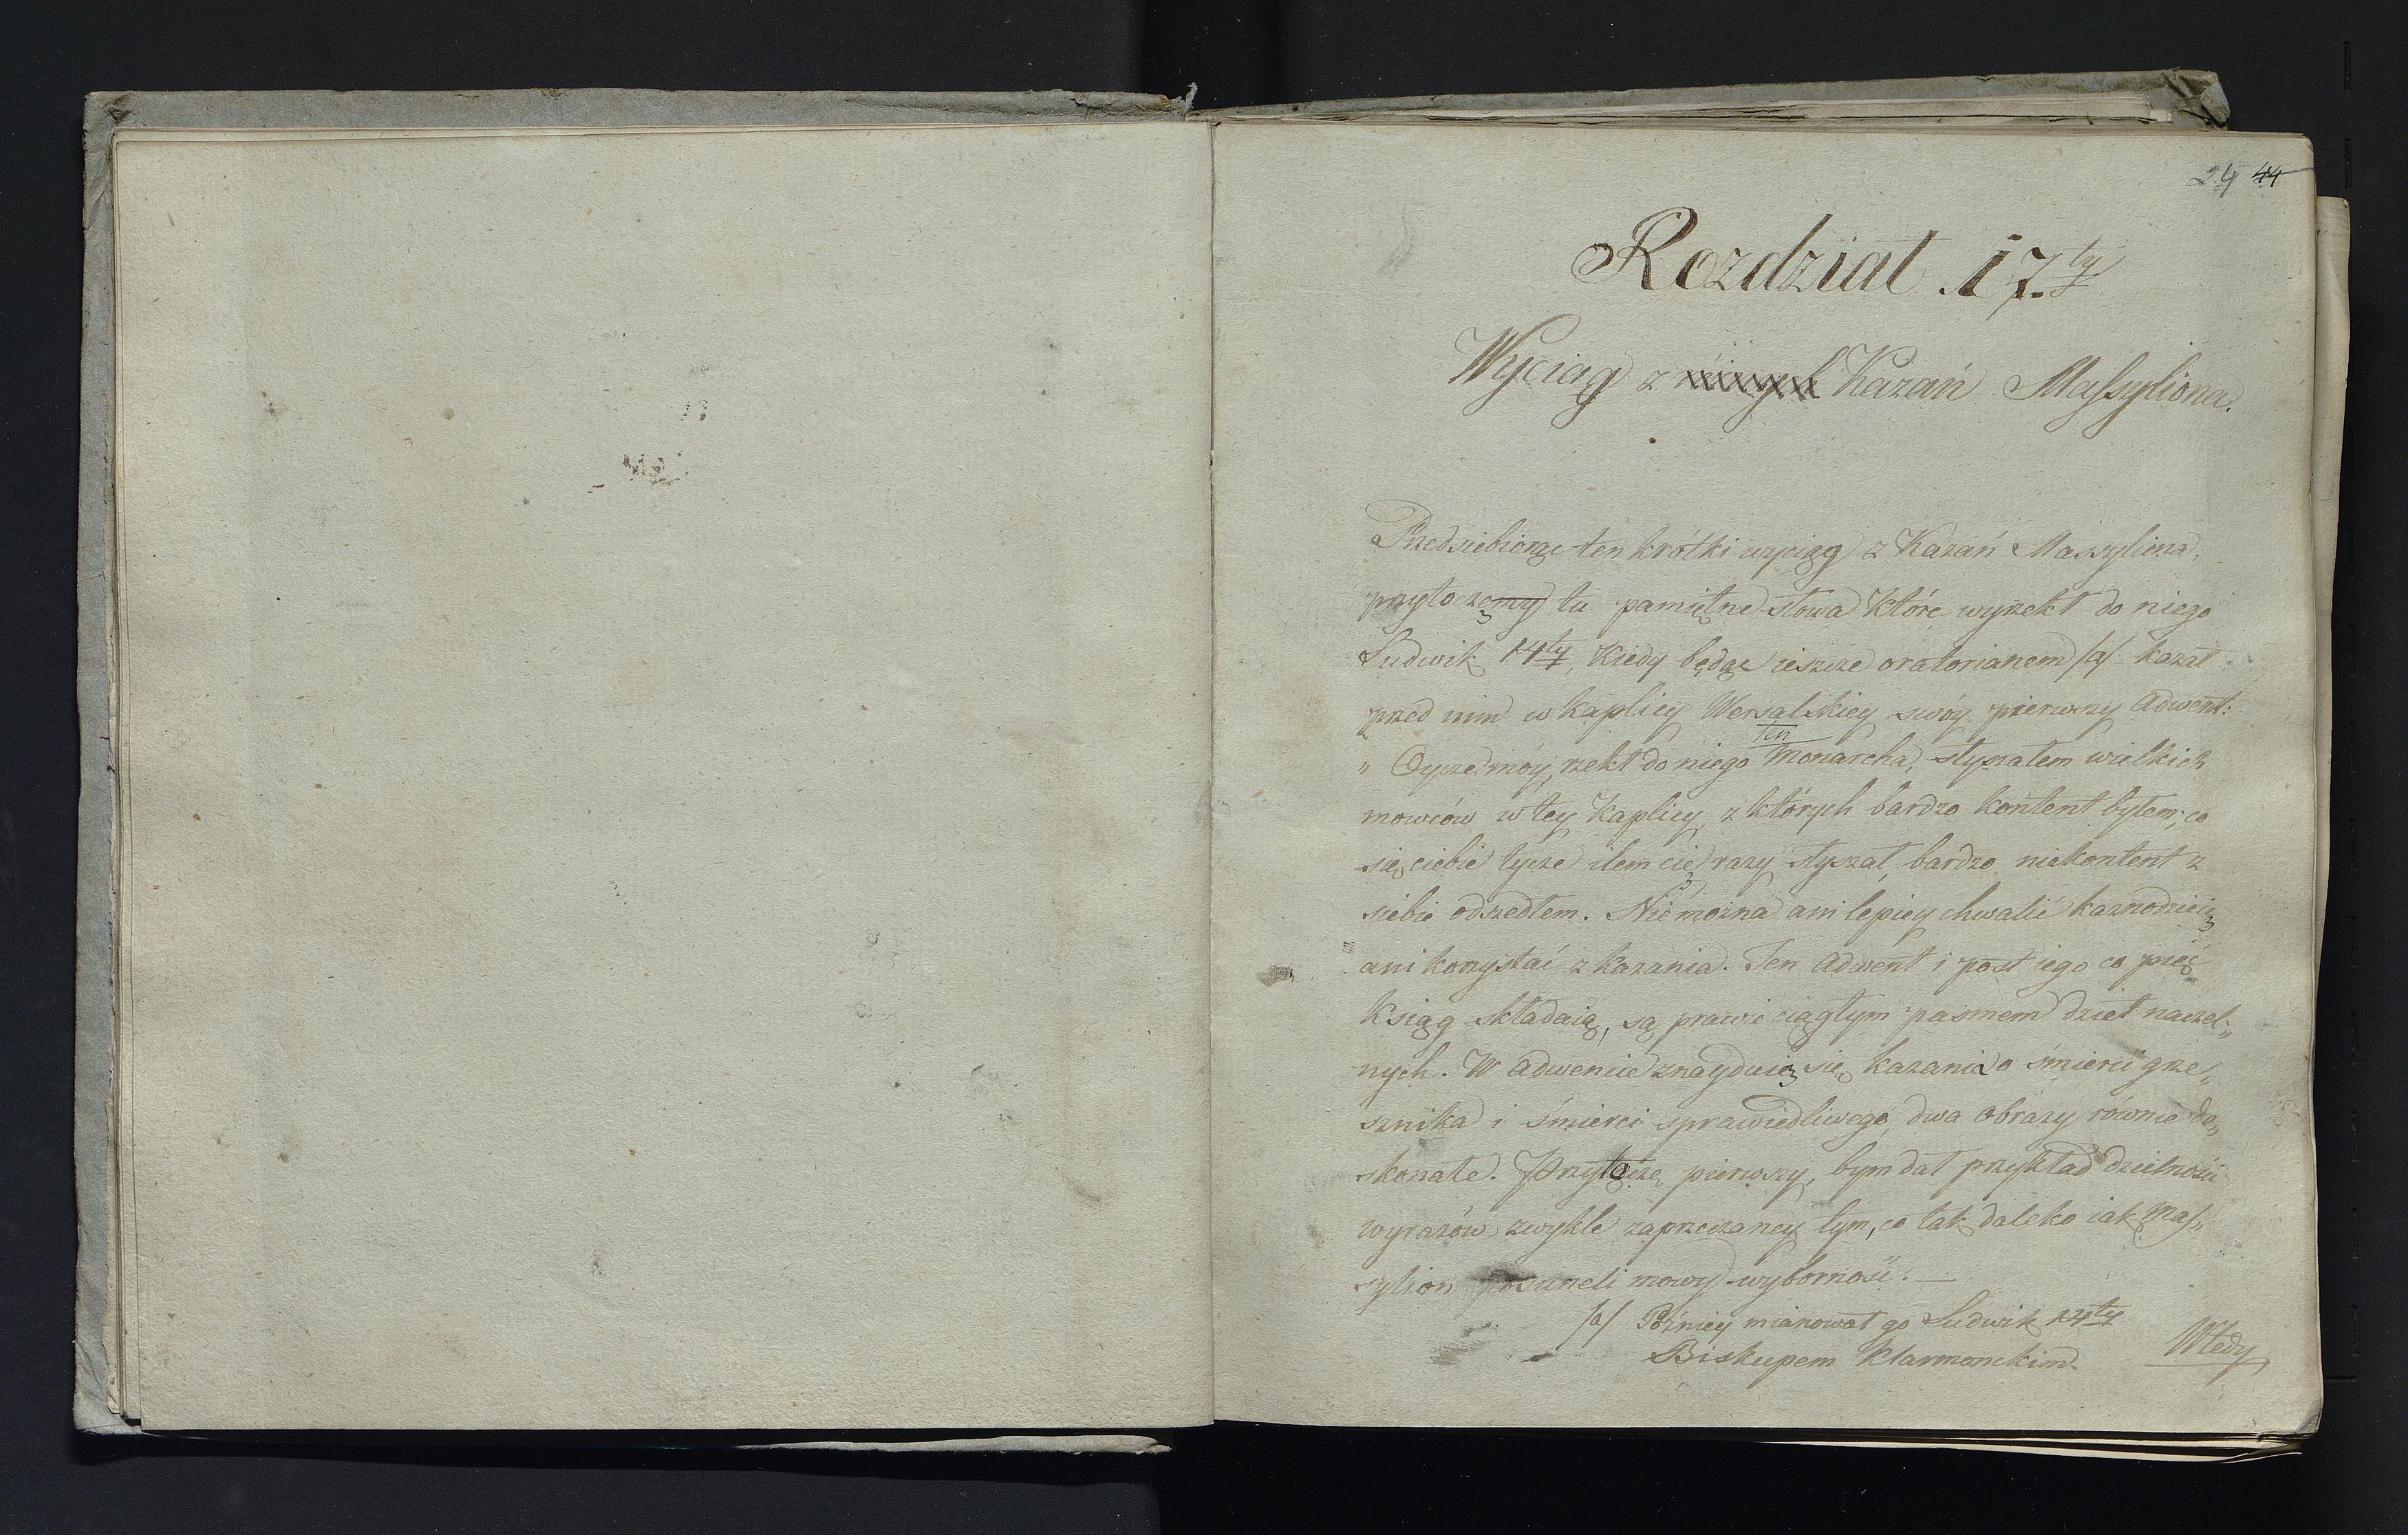 24 44
Rozdział 17.ty
Wyciąg z Kazań Massyliona.
Przedsiebiorąc ten krótki wyciąg z Kazań Massyliona,
przytoczę tu pamiętne słowa które wyrzekł do niego
Ludwik 14ty, kiedy będąc ieszcze oratorianem /a/ kazał
przed nim w kaplicy Wersalskiey swóy pierwszy Adwent:
„ Oycze móy, rzekł do niego ten Monarcha, słyszałem wielkich
mowców w tey kaplicy, z których bardzo kontent byłem; co
się ciebie tycze ilem cię razy słyszał, bardzo niekontent z
siebie odszedłem. Nie można ani lepiey chwalić kaznodzieię
ani korzystać z kazania. Ten Adwent i post iego co pięć
ksiąg składaią, są prawie ciągłym pasmem dzieł naczel„
nych. W Adwencie znayduią się kazania o śmierci grze„
sznika i śmierci sprawiedliwego, dwa obrazy równie do„
skonałe. Przyłączę pierwszy, bym dał przykład dzielności
wyrazów zwykle zaprzeczaney tym, co tak daleko iak Mas„
sylion posuneli mowy wyborność. —
/a/ Późniey mianował go Ludwik 14ty
Biskupem Klarmonckim.
Wtedy